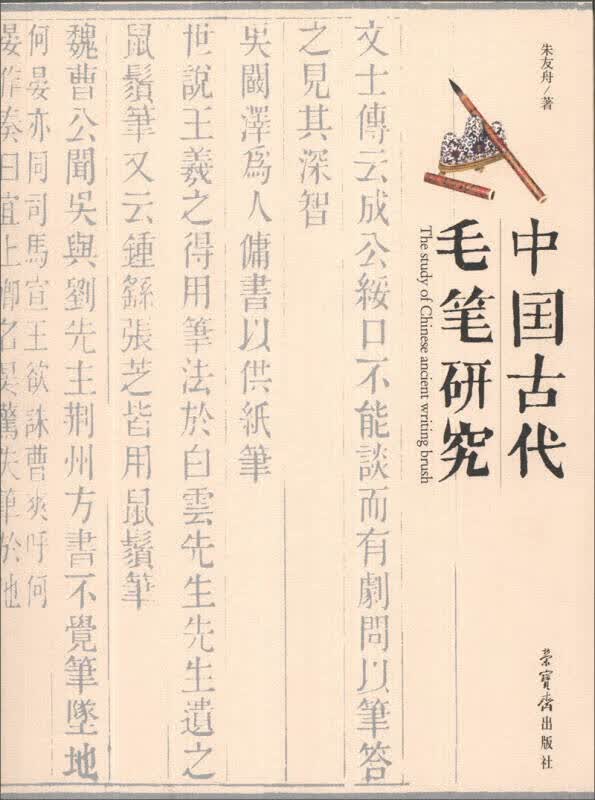 朱友舟/著
中国古代
毛笔研究
The study of Chinese ancient writing brush
荣宝斋出版社
文士傳云成公綏口不能談而有劇問以筆答
之見其深智
吳闞澤爲人傭書以供紙筆
世說王羲之得用筆法於白雲先生先生遺之
鼠鬚筆又云鍾繇張芝皆用鼠鬚筆
魏曹公聞吳與劉先主荆州方書不覺筆墜地
何晏亦同司馬宣王欲誅曹爽呼何
晏作奏曰宜上卿名晏驚失筆於地